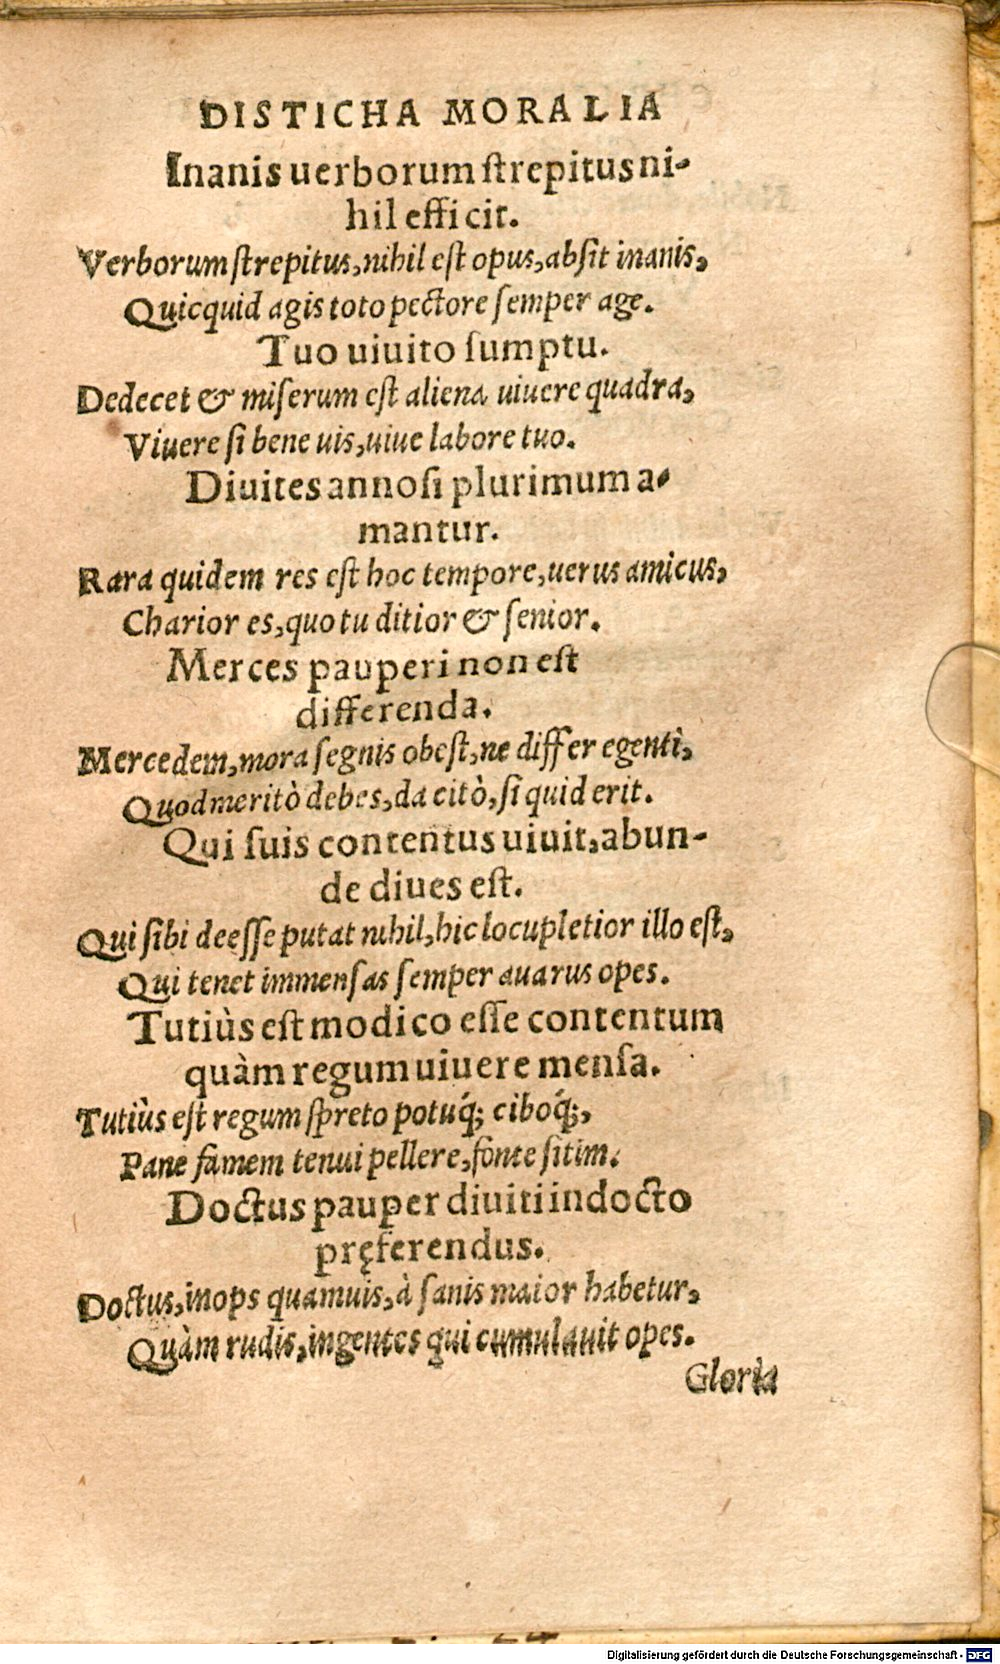 DISTICHA MORALIA
Inanis uerborum ſtrepitus ni-
hil efficit.
Verborum ſtrepitus, nihil eſt opus, abſit inanis,
Quicquid agis toto pectore ſemper age.
Tuo uiuito ſumptu.
Dedecet & miſerum eſt aliena uiuere quadra,
Viuere ſi bene uis, uiue labore tuo.
Diuites annoſi plurimum a-
mantur.
Rara quidem res eſt hoc tempore, uerus amicus,
Charior es, quo tu ditior & ſenior.
Merces pauperi non eſt
differenda.
Mercedem, mora ſegnis obeſt, ne differ egenti,
Quod meritò debes, da citò, ſi quid erit.
Qui ſuis contentus uiuit, abun-
de diues eſt.
Qui ſibi deeſſe putat nihil, hic locupletior illo eſt,
Qui tenet immenſas ſemper auarus opes.
Tutiùs eſt modico eſſe contentum
quàm regum uiuere menſa.
Tutiùs eſt regum ſpreto potuq́; ciboq́;,
Pane famem tenui pellere, fonte ſitim.
Doctus pauper diuiti indocto
pręferendus.
Doctus, inops quamuis, à ſanis maior habetur,
Quàm rudis, ingentes qui cumulauit opes.
Gloria
Digitalisierung gefördert durch die Deutsche Forschungsgemeinschaft - DFG